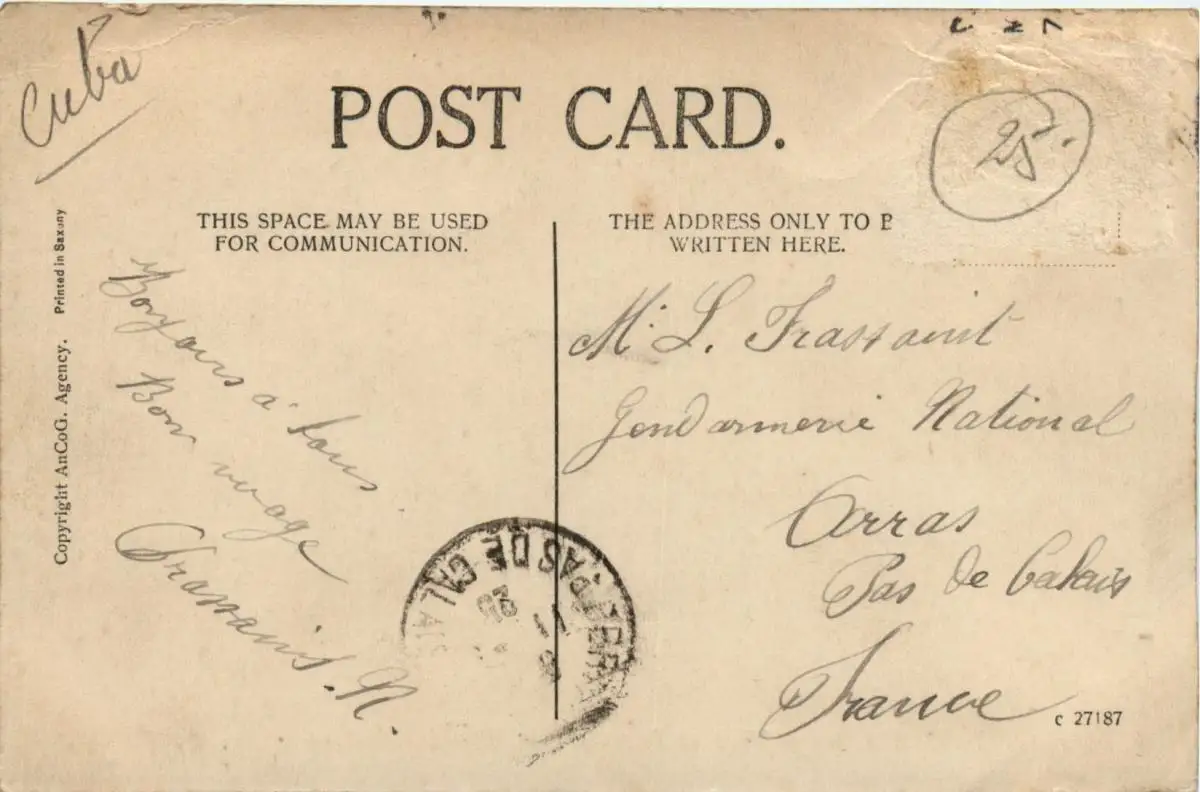 Cuba
POST CARD.
25.
THIS SPACE MAY BE USED
FOR COMMUNICATION.
THE ADDRESS ONLY TO B
WRITTEN HERE.
Printed in Saxony
Copyright AnCoG. Agency.
Bonjours a tous
Bon
M. L.
Gendarmerie National
Arras
Pas de Calais
France
PAS DE CALAIS
C 27187